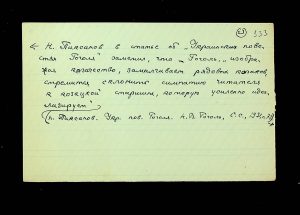 333
Н. Пиксанов в статье об „Украинских пове-
стях Гоголя" заметил, что „Гоголь, изобра-
жая казачество, замалчивает рядовых казаков,
стремится склонить симпатию читателя
к козацкой старшине, которую усиленно идеа-
лизирует"
(Н. Пиксанов. Укр. пов. Гоголя. Н.В. Гоголь, С.С., 1931,